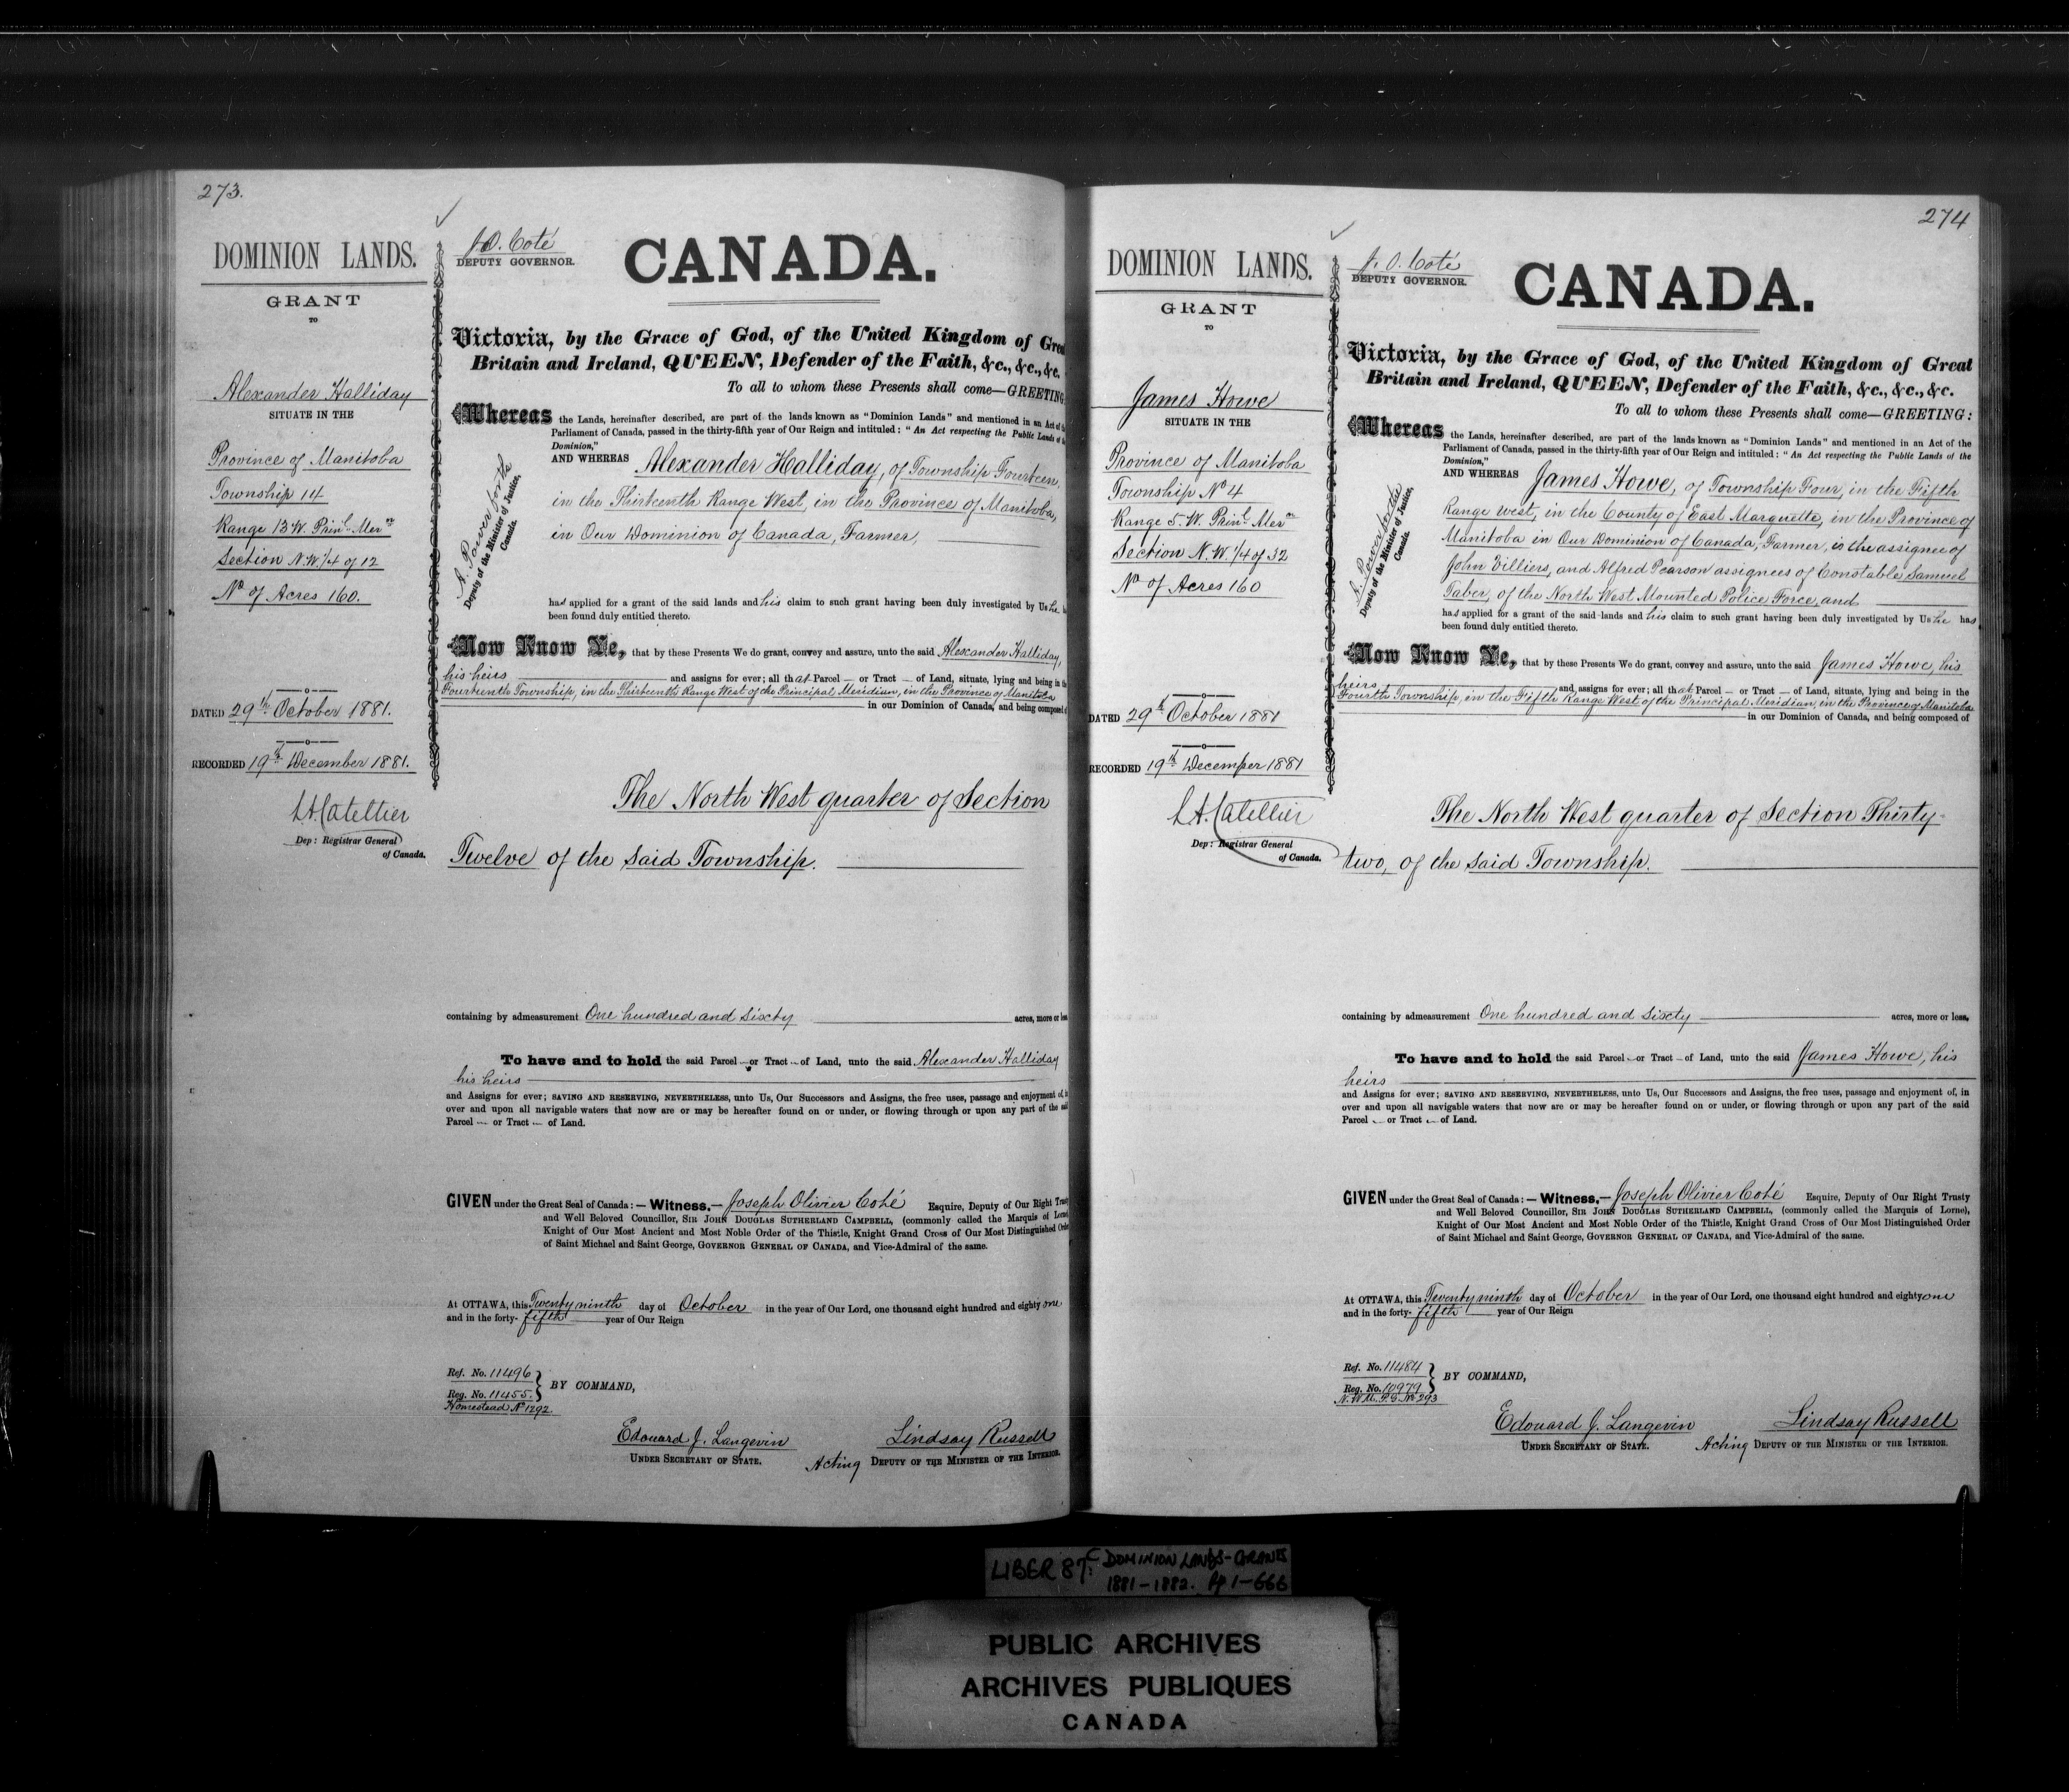 273.
DOMINION LANDS.
GRANT
TO
Alexander Halliday
SITUATE IN THE
Province of Manitoba
Township 14
Range 13 W. Prinl. Mern
Section N.W. 1/4 of 12
No of Acres 160.
DATED 29th October 1881.
RECORDED 19th December 1881.
L.A. Catellier
Dep: Registrar General
of Canada.
J.O. Coté
DEPUTY GOVERNOR.
CANADA.
Victoria, by the Grace of God, of the United Kingdom of Grea
Britain and Ireland, QUEEN, Defender of the Faith, &c., &c., &c.
To all to whom these Presents shall come—GREETING
Whereas the Lands, hereinafter described, are part of the lands known as "Dominion Lands" and mentioned in an Act of th
Parliament of Canada, passed in the thirty-fifth year of Our Reign and intituled: "An Act respecting the Public Lands of th
Dominion,"
A. Power for the
Deputy of the Minister of Justice,
Canada.
AND WHEREAS Alexander Halliday, of Township Fourteen,
in the Thirteenth Range West, in the Province of Manitoba,
in Our Dominion of Canada, Farmer,
has applied for a grant of the said lands and his claim to such grant having been duly investigated by Us he h
been found duly entitled thereto.
Now Know Ye, that by these Presents We do grant, convey and assure, unto the said Alexander Halliday,
his heirs and assigns for ever; all that Parcel — or Tract — of Land, situate, lying and being in th
Fourteenth Township, in the Thirteenth Range West of the Principal Meridian, in the Province of Manitoba
in our Dominion of Canada, and being composed o
The North West quarter of Section
Twelve of the said Township.
containing by admeasurement One hundred and Sixty acres, more or less
To have and to hold the said Parcel — or Tract — of Land, unto the said Alexander Halliday
his heirs
and Assigns for ever; SAVING AND RESERVING, NEVERTHELESS, unto Us, Our Successors and Assigns, the free uses, passage and enjoyment of, in
over and upon all navigable waters that now are or may be hereafter found on or under, or flowing through or upon any part of the said
Parcel — or Tract — of Land.
GIVEN under the Great Seal of Canada: — Witness,— Joseph Olivier Coté Esquire, Deputy of Our Right Trusty
and Well Beloved Councillor, SIR JOHN DOUGLAS SUTHERLAND CAMPBELL, (commonly called the Marquis of Lorne)
Knight of Our Most Ancient and Most Noble Order of the Thistle, Knight Grand Cross of Our Most Distinguished Order
of Saint Michael and Saint George, GOVERNOR GENERAL OF CANADA, and Vice-Admiral of the same.
At OTTAWA, this Twenty ninth day of October in the year of Our Lord, one thousand eight hundred and eighty one
and in the forty-fifth year of Our Reign
Ref. No. 11496
Reg. No. 11455.
Homestead No 1292.
BY COMMAND,
Edouard J. Langevin
UNDER SECRETARY OF STATE.
Lindsay Russell
Acting DEPUTY OF THE MINISTER OF THE INTERIOR.
274
DOMINION LANDS.
GRANT
TO
James Howe
SITUATE IN THE
Province of Manitoba
Township No 4
Range 5. W. Prinl. Mern
Section N.W. 1/4 of 32
No of Acres 160
DATED 29th October 1881
RECORDED 19th December 1881
L.A. Catellier
Dep: Registrar General
of Canada.
J. O. Coté
DEPUTY GOVERNOR.
CANADA.
Victoria, by the Grace of God, of the United Kingdom of Great
Britain and Ireland, QUEEN, Defender of the Faith, &c., &c., &c.
To all to whom these Presents shall come—GREETING:
Whereas the Lands, hereinafter described, are part of the lands known as "Dominion Lands" and mentioned in an Act of the
Parliament of Canada, passed in the thirty-fifth year of Our Reign and intituled: "An Act respecting the Public Lands of the
Dominion,"
A. Power for the
Deputy of the Minister of Justice,
Canada.
AND WHEREAS James Howe, of Township Four, in the Fifth
Range West, in the County of East Marquette, in the Province of
Manitoba in Our Dominion of Canada, Farmer, is the assignee of
John Villiers, and Alfred Pearson assignees of Constable Samuel
Taber, of the North West Mounted Police Force, and
has applied for a grant of the said lands and his claim to such grant having been duly investigated by Us he has
been found duly entitled thereto.
Now Know Ye, that by these Presents We do grant, convey and assure, unto the said James Howe, his
heirs and assigns for ever; all that Parcel — or Tract — of Land, situate, lying and being in the
Fourth Township, in the Fifth Range West of the Principal Meridian, in the Province of Manitoba
in our Dominion of Canada, and being composed of
The North West quarter of Section Thirty-
two, of the said Township.
containing by admeasurement One hundred and Sixty acres, more or less,
To have and to hold the said Parcel — or Tract — of Land, unto the said James Howe, his
heirs
and Assigns for ever; SAVING AND RESERVING, NEVERTHELESS, unto Us, Our Successors and Assigns, the free uses, passage and enjoyment of, in
over and upon all navigable waters that now are or may be hereafter found on or under, or flowing through or upon any part of the said
Parcel — or Tract — of Land.
GIVEN under the Great Seal of Canada: — Witness,— Joseph Olivier Coté Esquire, Deputy of Our Right Trusty
and Well Beloved Councillor, SIR JOHN DOUGLAS SUTHERLAND CAMPBELL, (commonly called the Marquis of Lorne),
Knight of Our Most Ancient and Most Noble Order of the Thistle, Knight Grand Cross of Our Most Distinguished Order
of Saint Michael and Saint George, GOVERNOR GENERAL OF CANADA, and Vice-Admiral of the same.
At OTTAWA, this Twenty ninth day of October in the year of Our Lord, one thousand eight hundred and eighty one
and in the forty-fifth year of Our Reign
Ref. No. 11484
Reg. No. 10979
N.W.M.P.S. No 293
BY COMMAND,
Edouard J. Langevin
UNDER SECRETARY OF STATE.
Lindsay Russell
Acting DEPUTY OF THE MINISTER OF THE INTERIOR.
LIBER 87C: DOMINION LANDS-GRANTS
1881-1882. Pp 1-666
PUBLIC ARCHIVES
ARCHIVES PUBLIQUES
CANADA